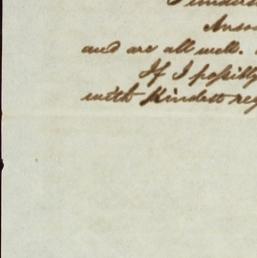 I unders
and are all well.
If I possibly
with Kindest reg